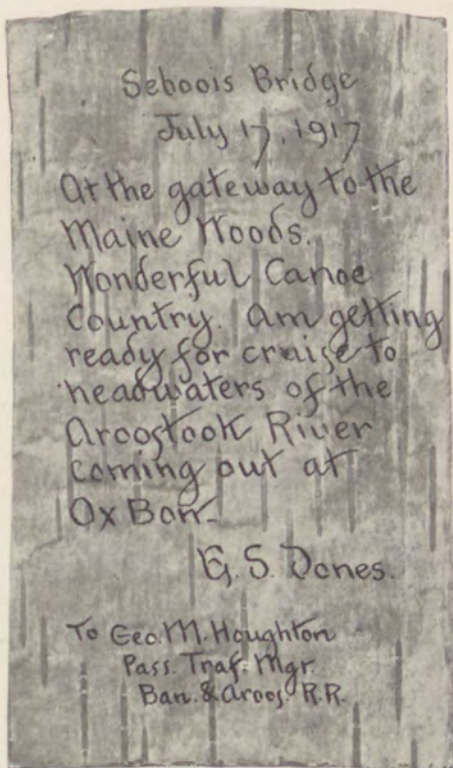 Seboois Bridge
July 17, 1917
At the gateway to the
Maine Woods.
Wonderful Canoe
Country. Am getting
ready for cruise to
headwaters of the
Aroostook River
coming out at
Ox Bow.
G. S. Dones.
To Geo. M. Houghton
Pass. Traf. Mgr.
Ban. & Aroos. R.R.